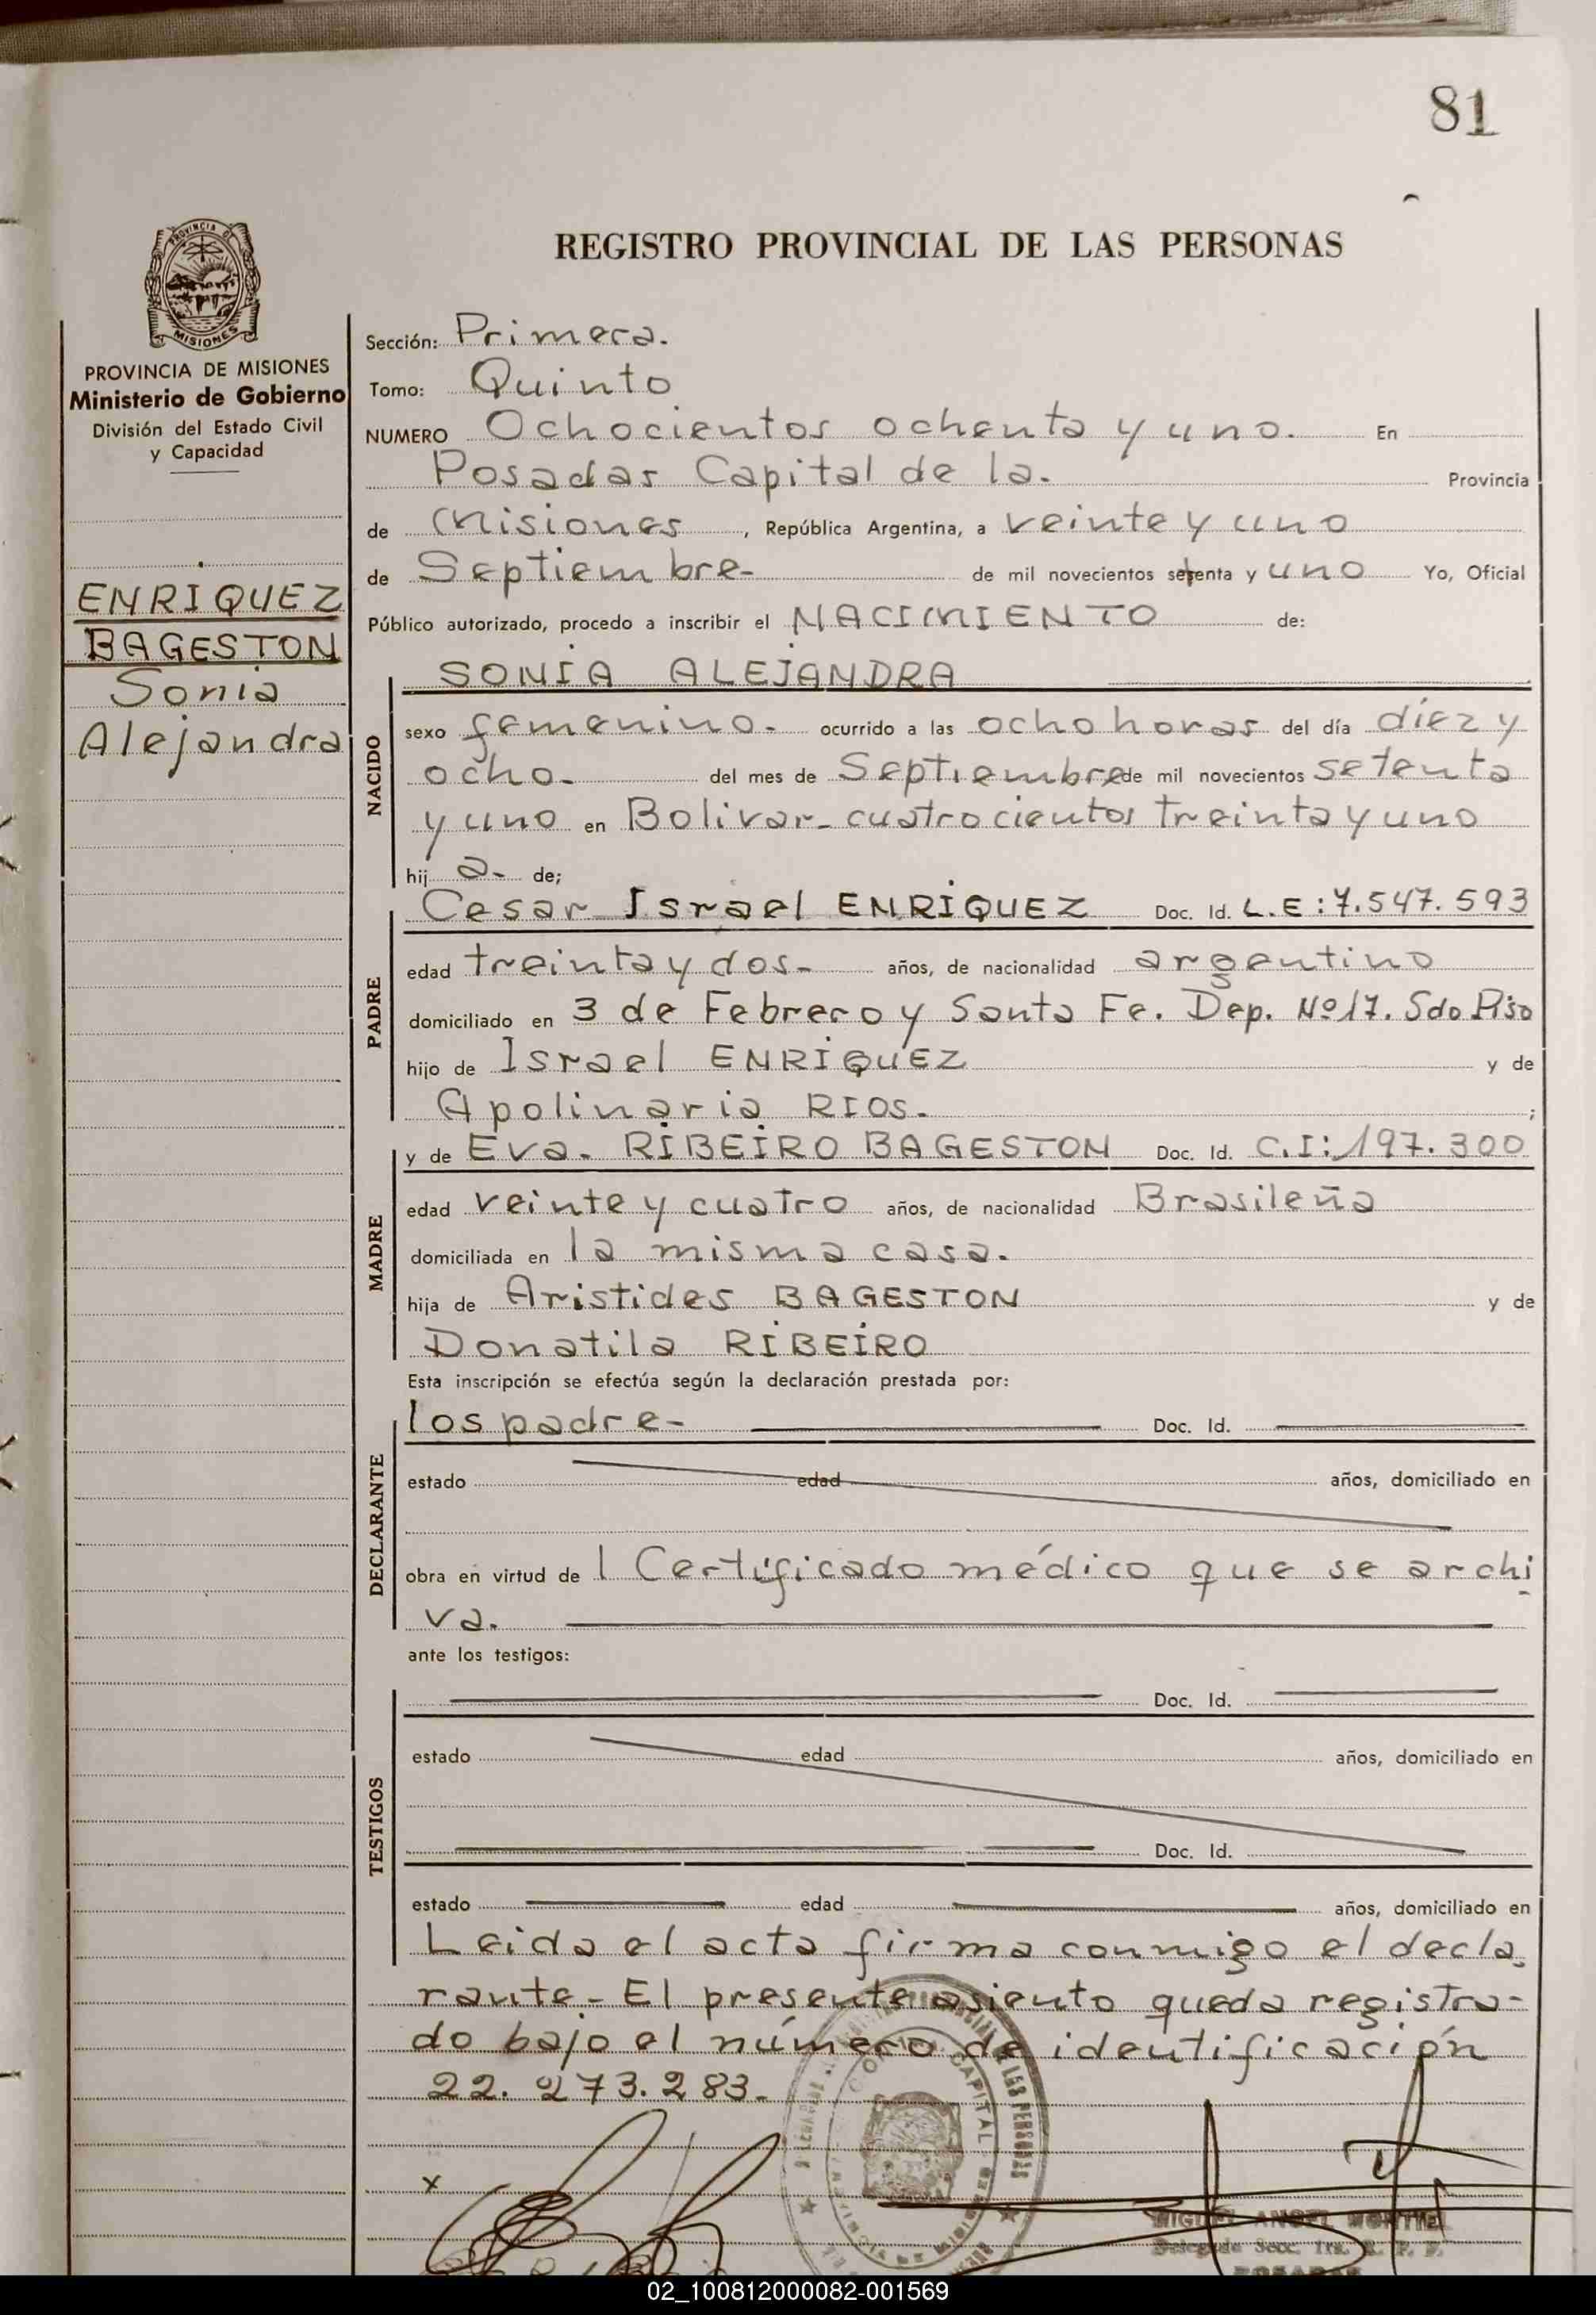 81
REGISTRO PROVINCIAL DE LAS PERSONAS
PROVINCIA DE
MISIONES
PROVINCIA DE MISIONES
Ministerio de Gobierno
División del Estado Civil
y Capacidad
ENRIQUEZ
BAGESTON
Sonia
Alejandra
Sección: Primera.
Tomo: Quinto
NUMERO Ochocientos ochenta y uno. En
Posadas Capital de la. Provincia
de Misiones, República Argentina, a veinte y uno
de Septiembre- de mil novecientos setenta y uno Yo, Oficial
Público autorizado, procedo a inscribir el NACIMIENTO de:
NACIDO
SONIA ALEJANDRA
sexo femenino- ocurrido a las ocho horas del día diez y
ocho- del mes de Septiembre de mil novecientos setenta
y uno en Bolivar- cuatrocientos treinta y uno
hij a- de;
PADRE
Cesar Israel ENRIQUEZ Doc. Id. L.E:7.547.593
edad treinta y dos- años, de nacionalidad argentino
domiciliado en 3 de Febrero y Santa Fe. Dep. Nº17. 5do Piso
hijo de Israel ENRIQUEZ y de
Apolinaria RIOS. ;
MADRE
y de Eva. RIBEIRO BAGESTON Doc. Id. C.I:197.300
edad veinte y cuatro años, de nacionalidad Brasileña
domiciliada en la misma casa.
hija de Aristides BAGESTON y de
Donatila RIBEIRO
Esta inscripción se efectúa según la declaración prestada por:
DECLARANTE
los padre- Doc. Id.
estado edad años, domiciliado en
obra en virtud de l Certificado médico que se archi
va.
ante los testigos:
TESTIGOS
Doc. Id.
estado edad años, domiciliado en
Doc. Id.
estado edad años, domiciliado en
Leida el acta firma conmigo el decla
rante- El presente asiento queda registra-
do bajo el número de identificación
22.273.283-
CAPITAL
x
MIGUEL ANGEL MONTIEL
Delegado Secc. 1ra. R. P. P.
POSADAS
02_100812000082-001569